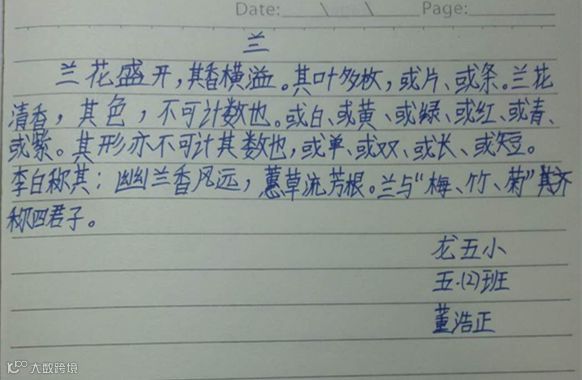 Date: Page:
兰
兰花盛开，其香横溢。其叶多枚，或片、或条。兰花
清香，其色，不可计数也。或白、或黄、或绿、或红、或青、
或紫。其形亦不可计其数也，或单、或双、或长、或短。
李白称其：幽兰香风远，蕙草流芳根。兰与“梅、竹、菊”齐
称四君子。
龙五小
五.(2)班
董浩正
大数跨境